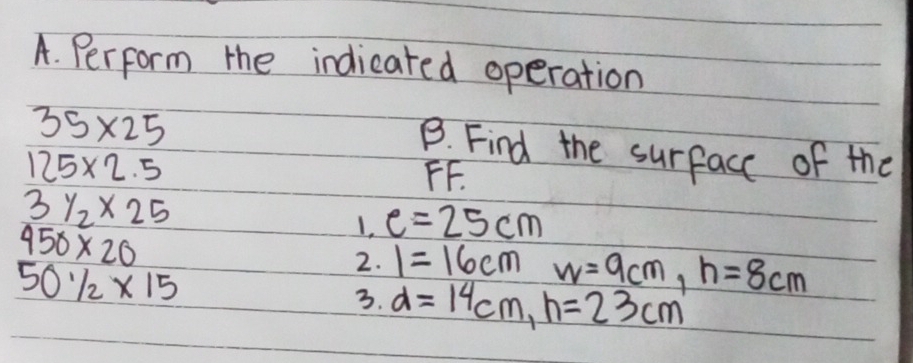 A. Perform the indicated operation
35x25
125x2.5
3 1/2 x 25
950 x 20
50 1/2 x 15
B. Find the surface of the
FF.
1. e=25cm
2. l=16cm w=9cm, h=8cm
3. d=14cm, h=23cm